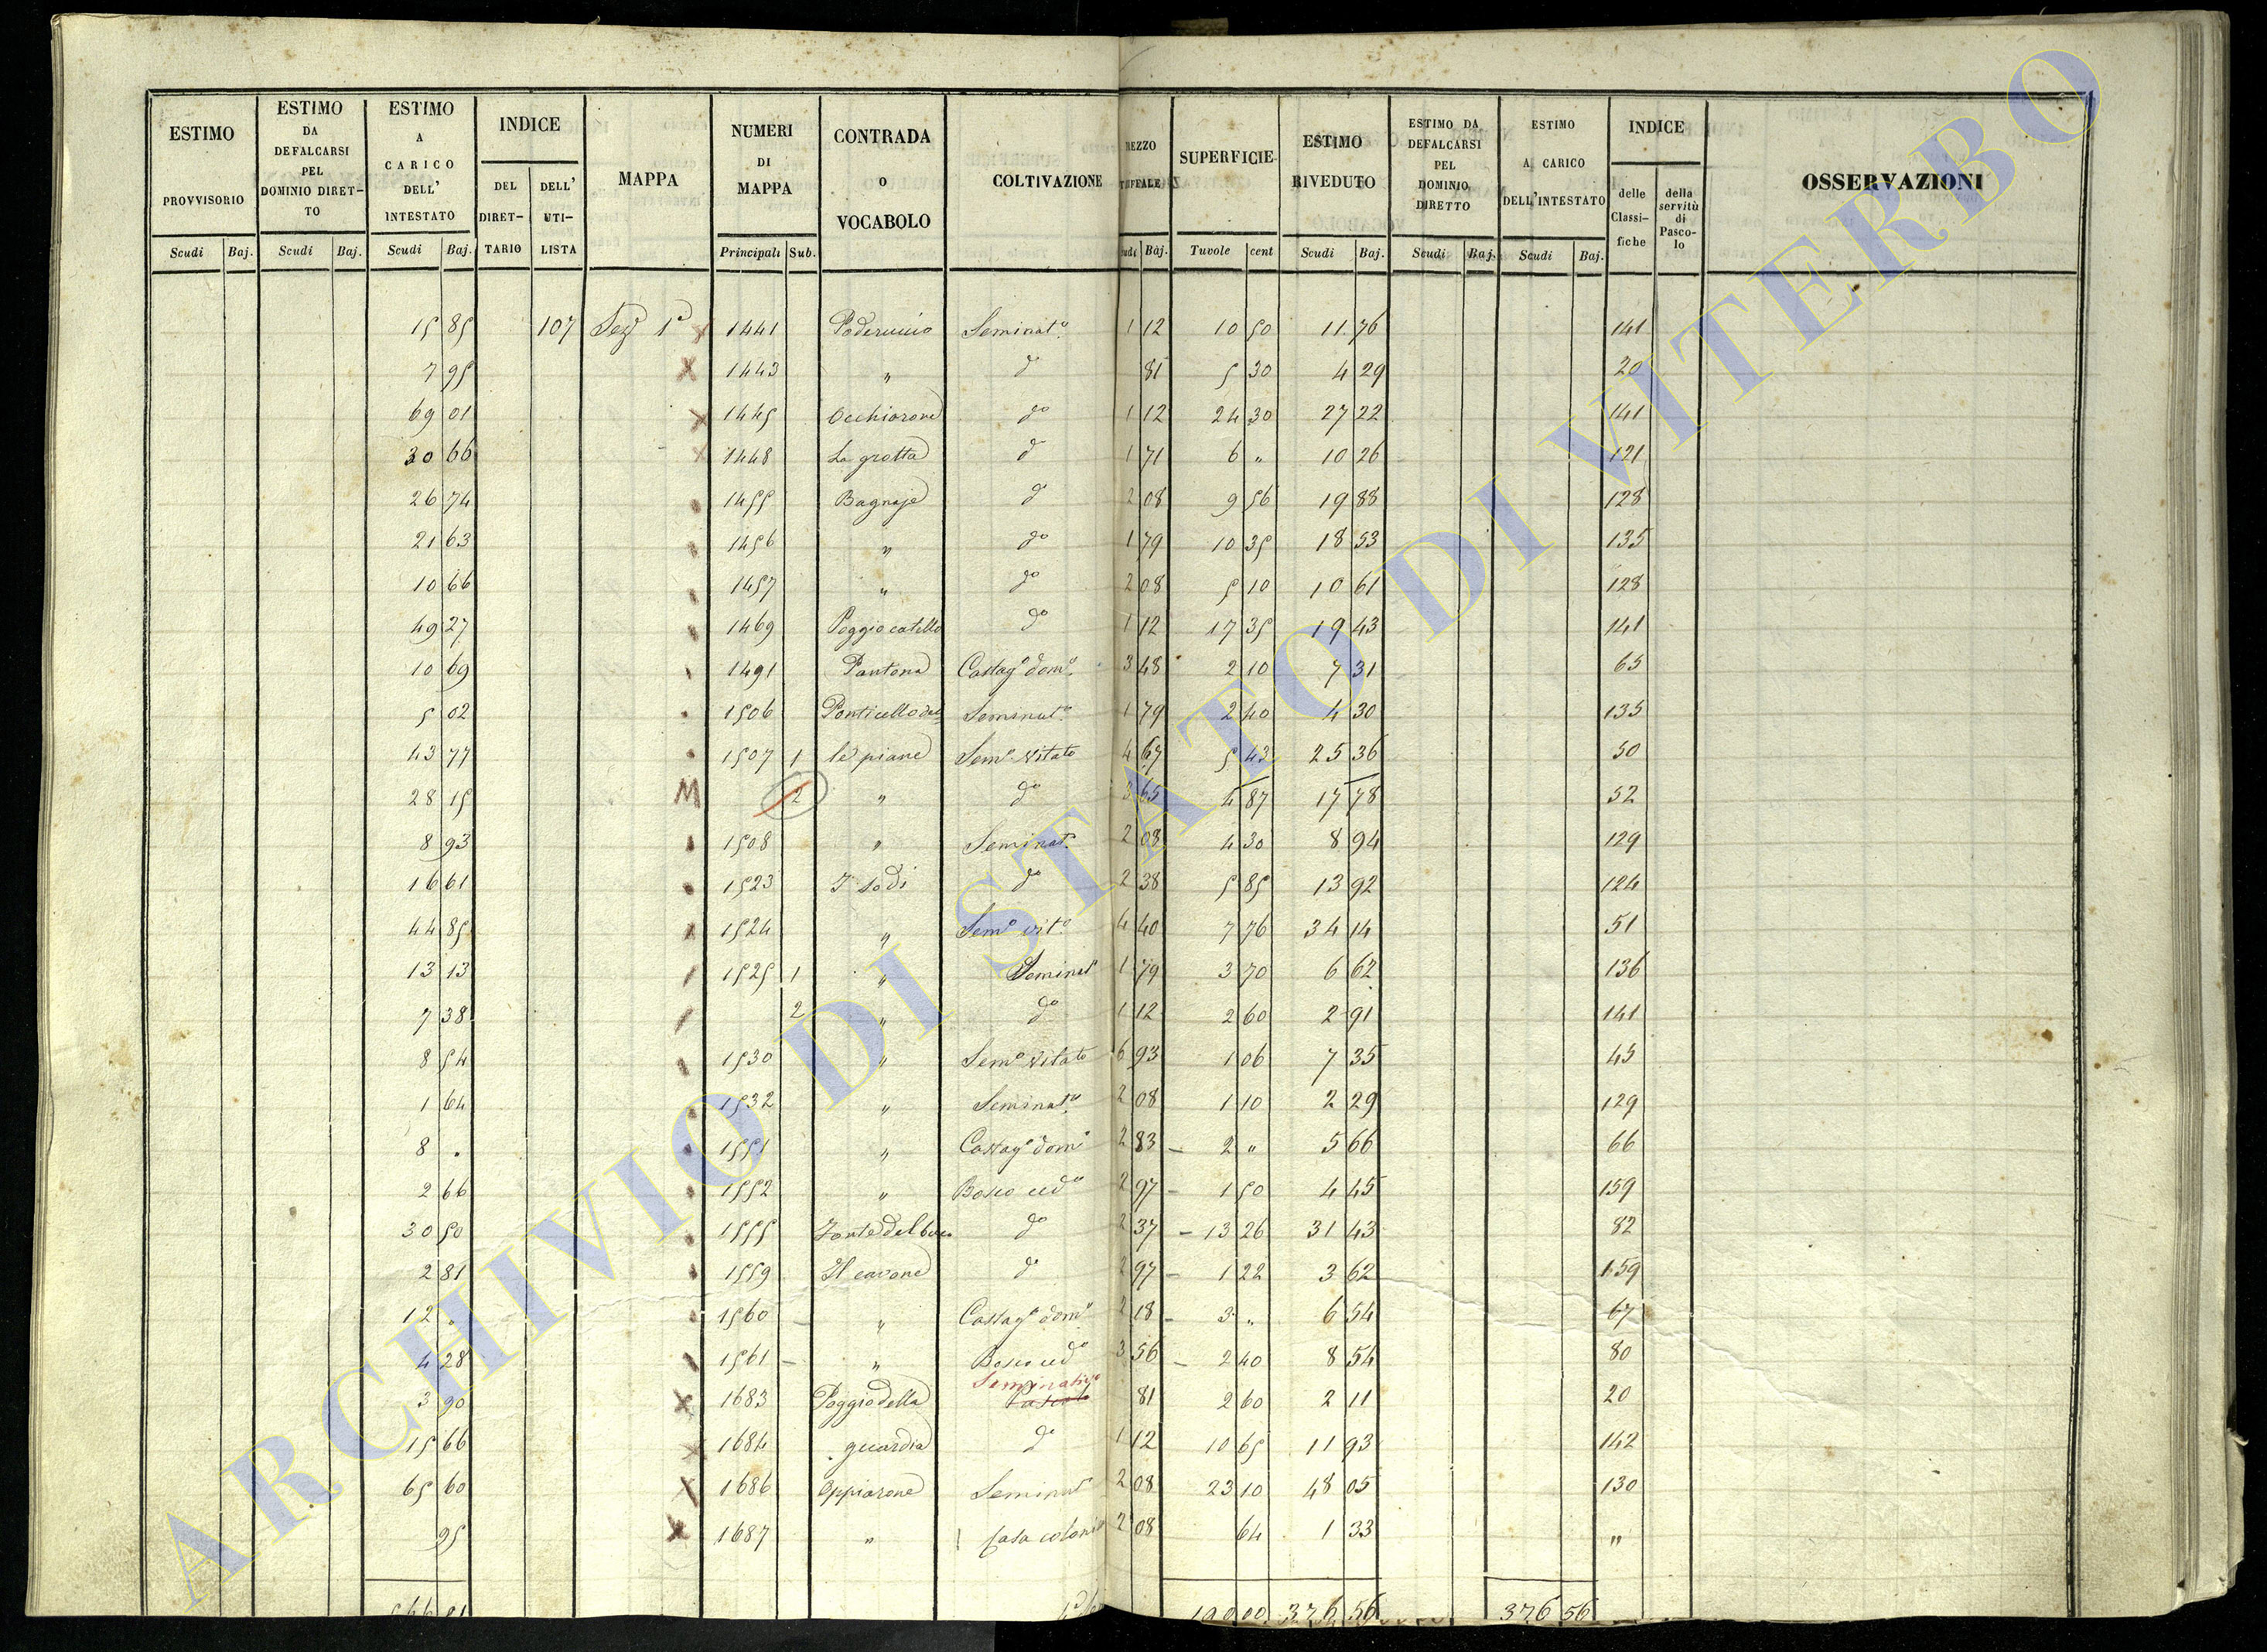 ESTIMO PROVVISORIO Scudi Baj.
ESTIMO DA DEFALCARSI PEL DOMINIO DIRET-TO Scudi Baj.
ESTIMO A CARICO DELL' INTESTATO Scudi Baj.
INDICE DEL DIRET-TARIO DELL' UTI-LISTA
MAPPA
NUMERI DI MAPPA Principali Sub.
CONTRADA O VOCABOLO
COLTIVAZIONE
Baj.
SUPERFICIE Tuvole cent
ESTIMO RIVEDUTO Scudi Baj.
ESTIMO DA DEFALCARSI PEL DOMINIO DIRETTO Scudi Baj.
ESTIMO A CARICO DELL'INTESTATO Scudi Baj.
INDICE delle Classi-fiche della servitù di Pasco-lo
OSSERVAZIONI
15 85 107 Sez 1ª x 1441 Seminatº 1 12 10 50 11 76 141
7 95 X 1443 " dº 81 5 30 4 29 20
69 01 x 1445 Occhiarone dº 1 12 24 30 27 22 141
30 66 x 1448 La grotta dº 1 71 6 " 10 26 121
26 74 1455 Bagnaje dº 2 08 9 56 19 88 128
21 63 1456 " dº 1 79 10 35 18 53 135
10 66 1457 " dº 2 08 5 10 10 61 128
49 27 1469 Poggio catillo dº 1 12 17 35 19 43 141
10 69 1491 Pantona Castagº domº 3 48 2 10 7 31 65
5 02 1506 Ponticello Seminatº 1 79 2 40 4 30 135
43 77 1507 1 le piane Semº vitato 4 67 5 43 25 36 50
28 15 M 2 " dº 3 65 4 87 17 78 52
8 93 1508 " Seminatº 2 08 4 30 8 94 129
16 61 1523 I sodi dº 2 38 5 85 13 92 124
44 85 1524 " Semº vitº 4 40 7 76 34 14 51
13 13 1525 1 " Seminatº 1 79 3 70 6 62 136
7 38 2 " dº 1 12 2 60 2 91 141
8 54 1530 " Semº vitato 6 93 1 06 7 35 45
1 64 1532 " Seminatº 2 08 1 10 2 29 129
8 . 1551 " Castagº domº 2 83 2 " 5 66 66
2 66 1552 " Bosco cedº 2 97 1 50 4 45 159
30 50 1555 Fonte del buco dº 2 37 13 26 31 43 82
2 81 1559 Il cavone dº 2 97 1 22 3 62 159
12 . 1560 " Castagº domº 2 18 3 " 6 54 67
4 28 1561 " Bosco cedº 3 56 2 40 8 54 80
Seminativo
3 90 x 1683 Poggio della Pascolo 81 2 60 2 11 20
15 66 x 1684 guardia dº 1 12 10 65 11 93 142
65 60 X 1686 Oppiarone Seminatº 2 08 23 10 48 05 130
95 x 1687 " Casa colonica 2 08 64 1 33 "
376 56 376 56
ARCHIVIO DI STATO DI VITERBO